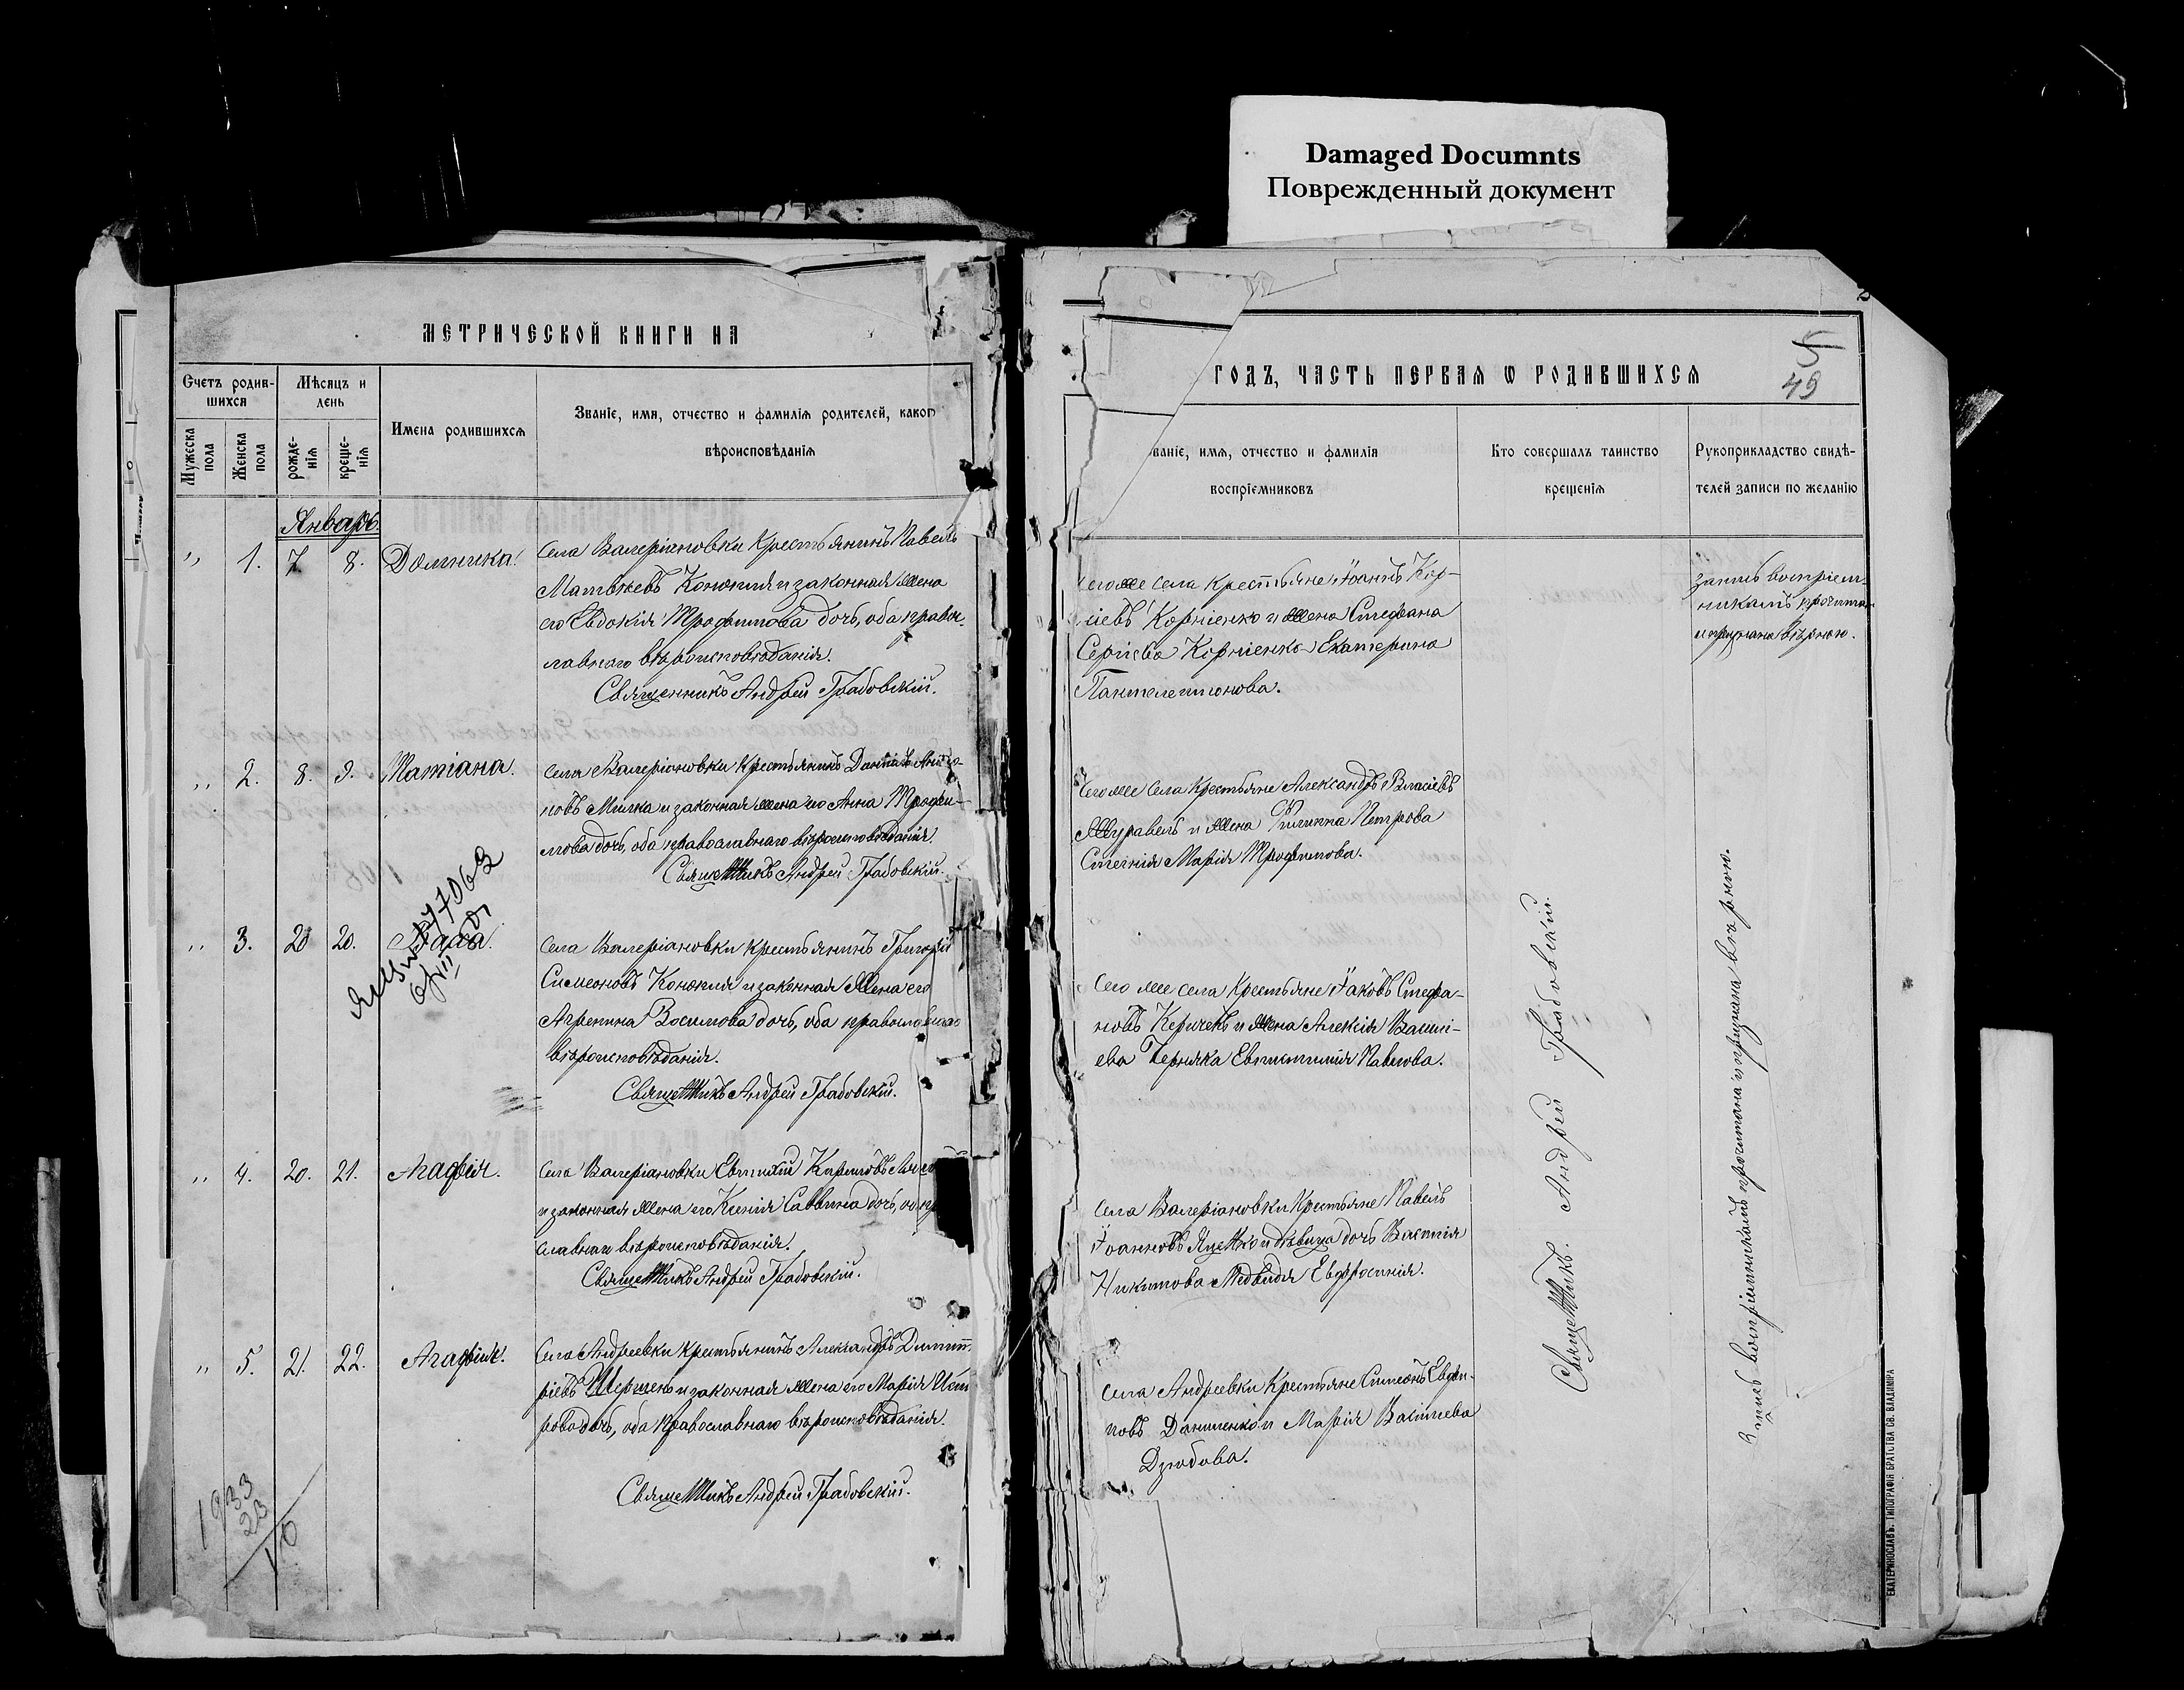 Damaged Documnts
Поврежденный документ
МЕТРИЧЕСКОЙ КНИГИ НА
Счетъ родив-
шихся
Мѣсяцъ и
день
Мужеска
пола
Женска
пола
рожде-
нія
креще-
нія
Имена родившихся
Званіе, имя, отчество и фамилія родителей, каког
вѣроисповѣданія
Январь.
„ 1. 7. 8. Домника.
села Валеріановки крестьянинъ Павелъ
Матвѣевъ и законная жена
его Евдокія Трофимова дочь, оба правос-
лавнаго вѣроисповѣданія.
Священникъ Андрей Грабовскій.
„ 2. 8. 9. Татіана.
села Валеріановки крестьянинъ
новъ Милка и законная жена его Анна Трофи-
мова дочь, оба православнаго вѣроисповѣданія.
Священникъ Андрей Грабовскій.
„ 3. 20 20.
села Валеріановки крестьянинъ Григорій
Симеоновъ и законная жена его
Агрепина дочь, оба православнаго
вѣроисповѣданія.
Священникъ Андрей Грабовскій.
„ 4. 20. 21. Агафія.
села Валеріановки Евтихій Кириловъ
и законная жена его Ксенія Саввина дочь,
славнаго вѣроисповѣданія.
Священникъ Андрей Грабовскій.
„ 5. 21. 22. Агафія.
села Андреевки крестьянинъ Александръ Димит-
ріевъ и законная жена его Марія
рова дочь, оба православнаго вѣроисповѣданія.
Священникъ Андрей Грабовскій.
1933
23
10
5
49
ГОДЪ, ЧАСТЬ ПЕРВАЯ Ѡ РОДИВШИХСЯ
ваніе, имя, отчество и фамилія
воспріемниковъ
Кто совершалъ таинство
крещенія
Рукоприкладство свидѣ-
телей записи по желанію
того же села крестьяне Іоаннъ Кор-
Корніенко и жена Стефана
Сергіева Корніенко Екатерина
Пантелеимонова.
того же села крестьяне Александръ Власіевъ
Журавель и жена Филиппа Петрова
Марія Трофимова.
сего же села крестьяне Іаковъ Стефа-
новъ и жена Алексія Васили-
ева Черняка Евтихія Павлова.
села Валеріановки крестьяне Павелъ
Іоанновъ Яценко и дѣвица дочь
Никитова Медведя Евфросинія.
села Андреевки крестьяне Симеонъ
новъ Даниленко и Марія Василиева
Дзюбова.
Священникъ Андрей Грабовскій.
запись воспріем-
никамъ прочитана
и признана вѣрною.
Запись воспріемникамъ прочитана и признана вѣрною.
ЕКАТЕРИНОСЛАВЪ. ТИПОГРАФІЯ БРАТСТВА СВ. ВЛАДИМІРА